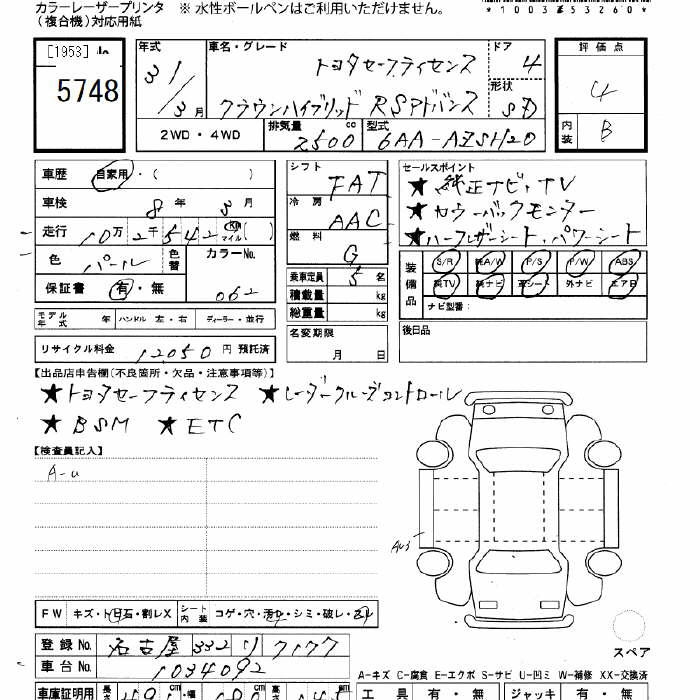 カラーレーザープリンタ ※ 水性ボールペンはご利用いただけません。
(複合機)対応用紙
[1953]
5748
年式 31/3月
車名・グレード トヨタセーフティセンス
クラウンハイブリッド RSアドバンス
ドア 4
形状 SD
評価点 4
内装 B
2WD・4WD
排気量 2500 cc
型式 6AA-AZSH20
車歴 自家用・( )
車検 8年3月
走行 10万2千542 km マイル ( )
色 パール 色替 カラーNo. 062
保証書 有・無
シフト FAT
冷房 AAC
燃料 G
乗車定員 5 名
積載量 kg
総重量 kg
セールスポイント
★純正ナビ・TV
★カラーバックモニター
★ハーフレザーシート、パワーシート
装備品 S/R 純A/W P/S P/W ABS
純TV 純ナビ 革シート 外ナビ エアB
ナビ型番:
モデル年式 年 ハンドル 左・右 ディーラー・並行
名変期限 月 日
後日品
リサイクル料金 12050 円 預託済
【出品店申告欄(不良箇所・欠品・注意事項等)】
★トヨタセーフティセンス ★レーダークルーズコントロール
★BSM ★ETC
【検査員記入】
A-u
AU3
FW キズ・飛石・割レX シート内装 コゲ・穴・汚レ・シミ・破レ・スレ
登録No. 名古屋 332 リ 7177
車台No. 1034092
スペア
A-キズ C-腐食 E-エクボ S-サビ U-凹ミ W-補修 XX-交換済
車庫証明用
工具 有・無 ジャッキ 有・無